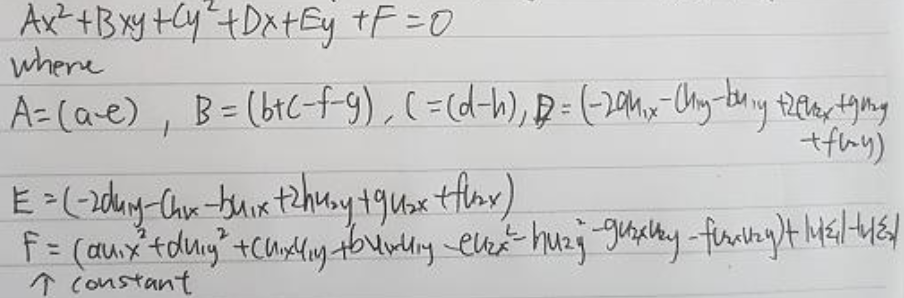 Ax²+Bxy+Cy²+Dx+Ey+F=0
where
A=(a-e), B=(b+c-f-g), C=(d-h), D=(-2au₁ₓ-cu₁y-bu₁y+2eu₂ₓ+gu₂y
+fu₂y)
E=(-2du₁y-cu₁ₓ-bu₁ₓ+2hu₂y+gu₂ₓ+fu₂ₓ)
F=(au₁ₓ²+du₁y²+cu₁ₓu₁y+bu₁ₓu₁y-eu₂ₓ²-hu₂y²-gu₂ₓu₂y-fu₂ₓu₂y)+
↑ constant